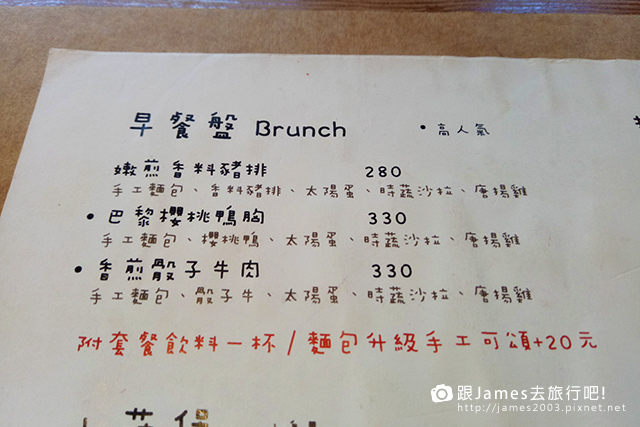 早餐盤 Brunch
•高人氣
嫩煎香料豬排 280
手工麵包、香料豬排、太陽蛋、時蔬沙拉、唐揚雞
•巴黎櫻桃鴨胸 330
手工麵包、櫻桃鴨、太陽蛋、時蔬沙拉、唐揚雞
•香煎骰子牛肉 330
手工麵包、骰子牛、太陽蛋、時蔬沙拉、唐揚雞
附套餐飲料一杯/麵包升級手工可頌+20元
跟James去旅行吧!
http://james2003.pixnet.net